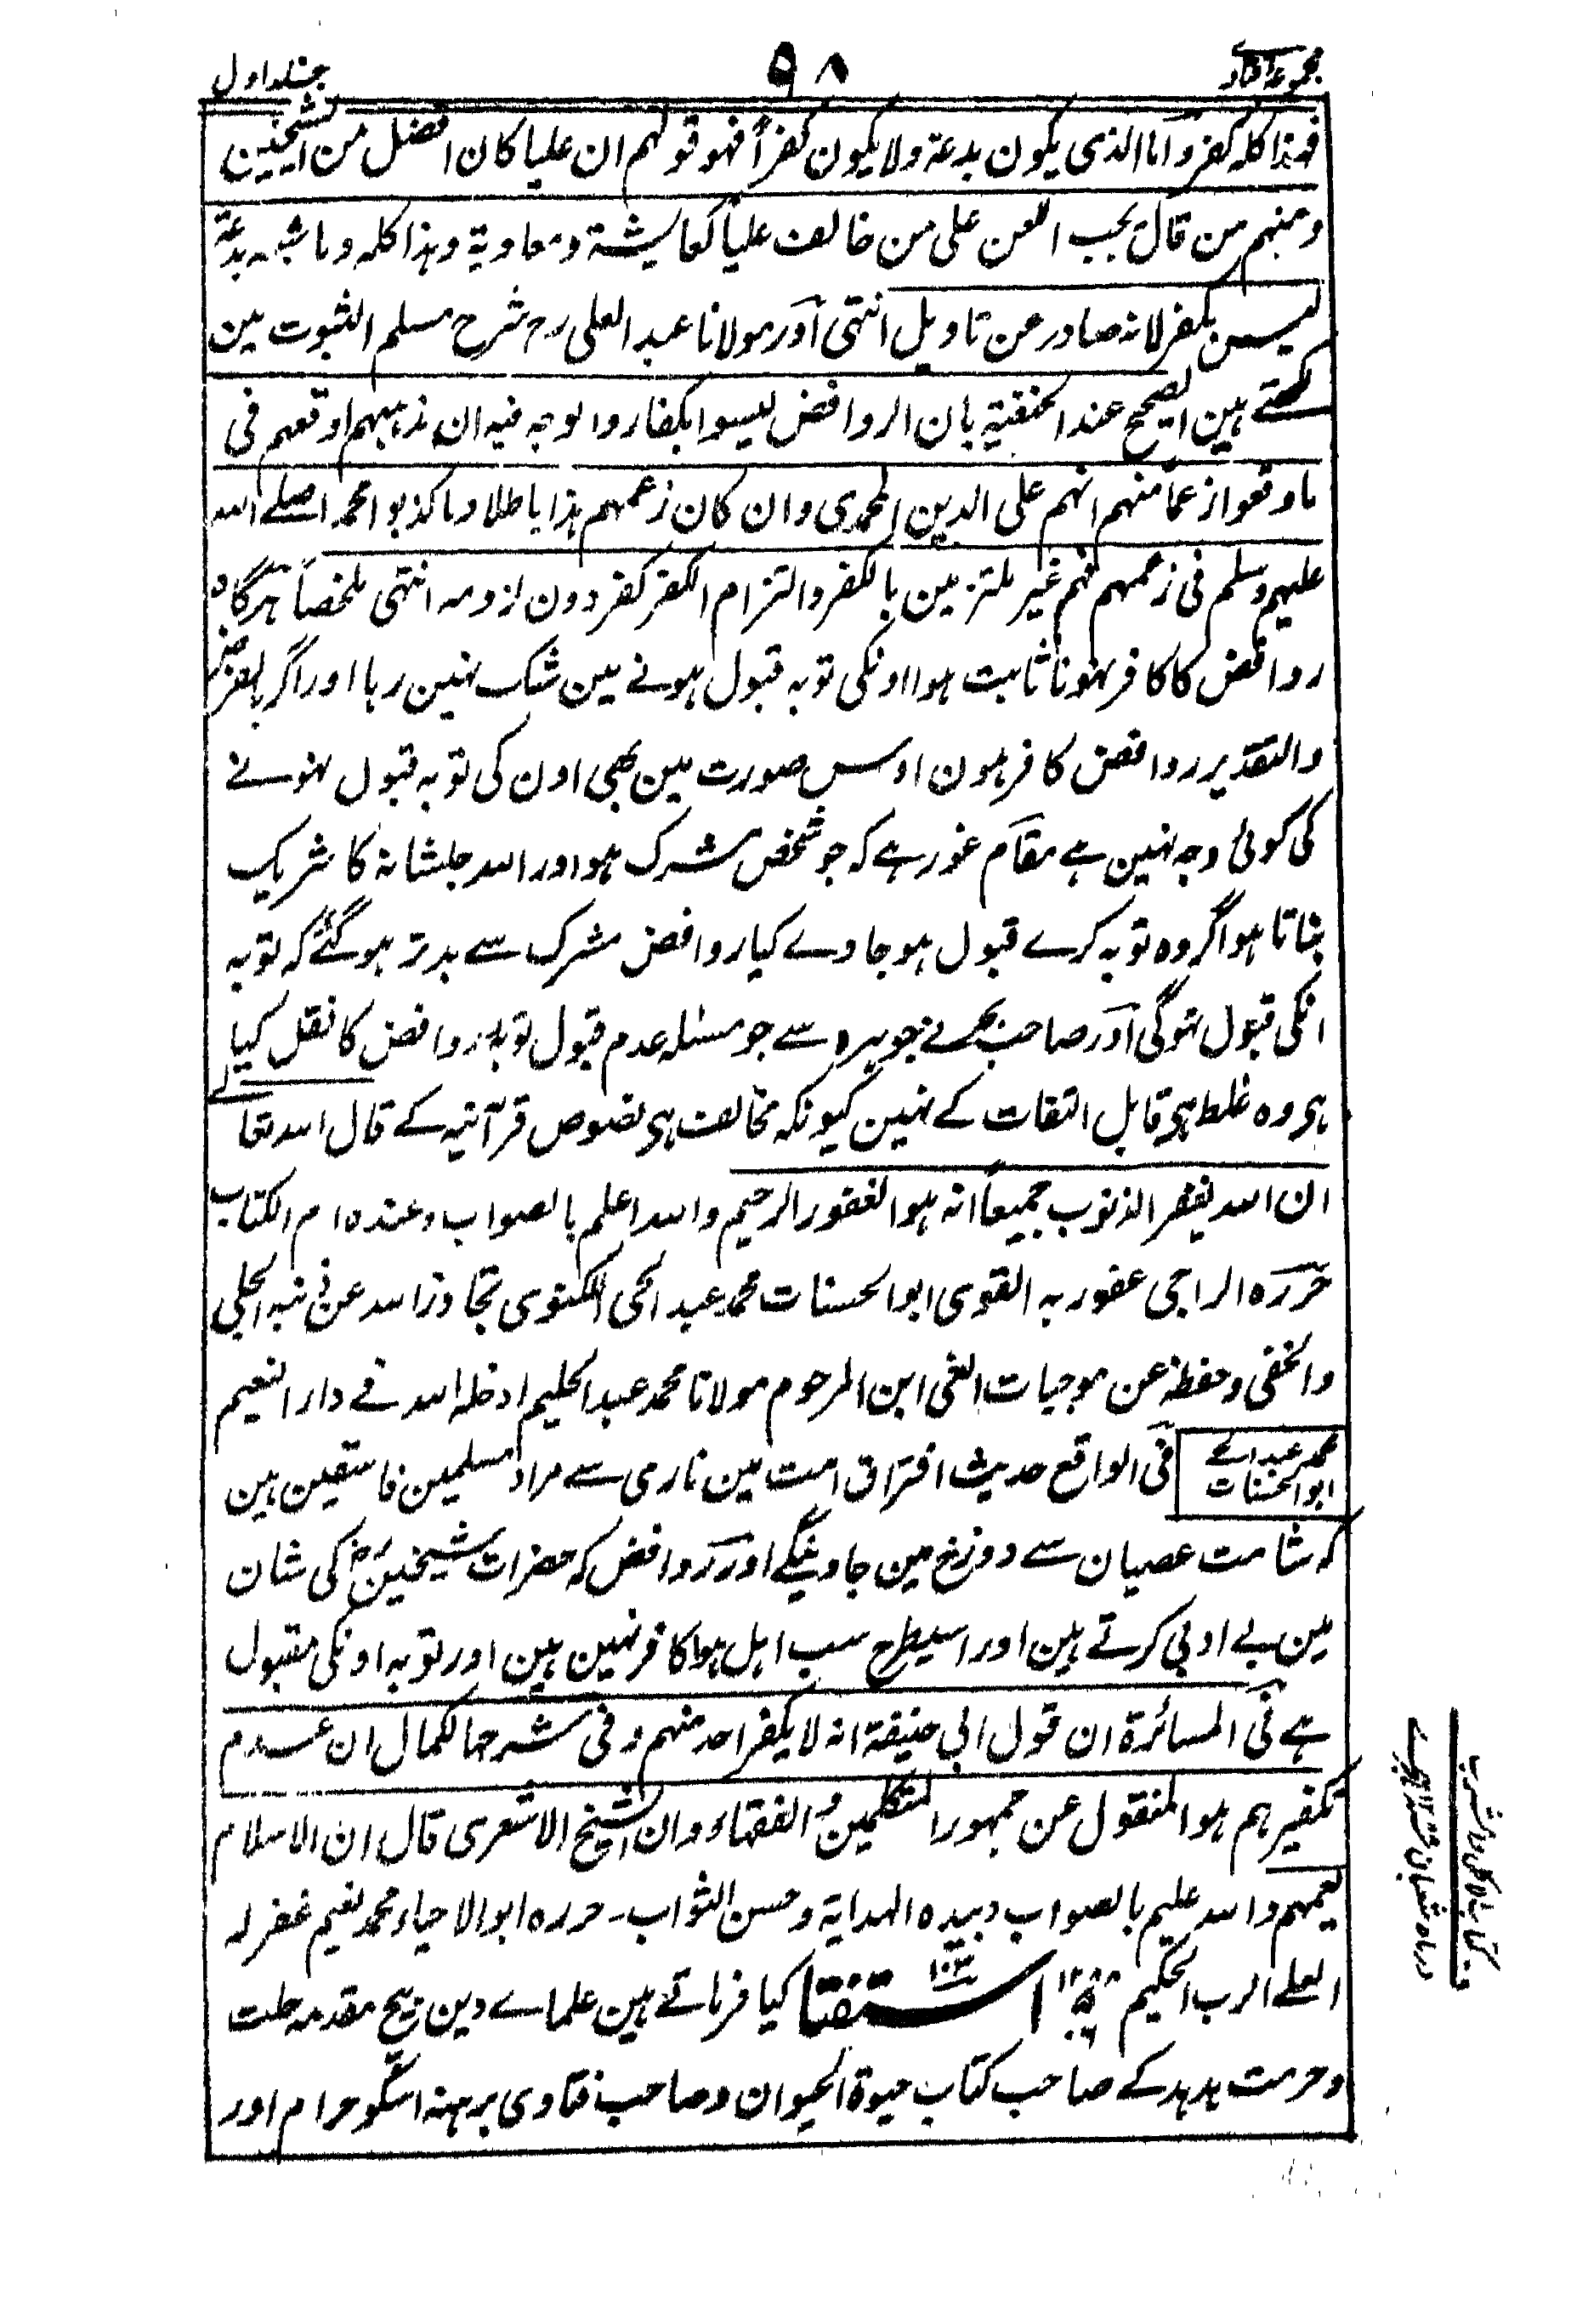 مجموعہ فتاوے
۵۸
جلد اول
فہذا کلہ کفر وآما الذی یکون بدعة ولا یکون کفراً فہو قولہم ان علیا کان افضل من الشیخین
ومنہم من قال یجب اللعن علی من خالف علیاً کعایشة ومعاویة وہذا کلہ وما شبہہ بدعة
لیس بکفر لانہ صادر عن تاویل انتہی اور مولانا عبد العلی رح شرح مسلم الثبوت مین
لکھتے ہین الصحیح عند الحنفیة بان الروافض لیسوا بکفار والوجہ فیہ ان مذہبہم اوقعہم فی
ما وقعوا زعماً منہم انہم علی الدین المحمدی وان کان زعمہم ہذا باطلا وما کذبوا محمدا صلے اللہ
علیہ وسلم فی زعمہم فہم غیر ملتزمین بالکفر والتزام الکفر کفر دون لزومہ انتہی ملخصاً ہرگاہ
روافض کا کافر نہونا ثابت ہوا اونکی توبہ قبول ہونے مین شک نہین رہا اور اگر بالفرض
والتقدیر روافض کافر ہون اوس صورت مین بھی اون کی توبہ قبول نہونے
کی کوئی وجہ نہین ہے مقام غور ہے کہ جو شخص مشرک ہو اور اللہ جلشانہ کا شریک
بناتا ہو اگر وہ توبہ کرے قبول ہو جاوے کیا روافض مشرک سے بدتر ہو گئے کہ توبہ
انکی قبول نہوگی اور صاحب بحر نے جوہرہ سے جو مسئلہ عدم قبول توبہ روافض کا نقل کیا
ہی وہ غلط ہی قابل التفات کے نہین کیونکہ مخالف ہی نصوص قرآنیہ کے قال اللہ تعالے
ان اللہ یغفر الذنوب جمیعاً انہ ہو الغفور الرحیم واللہ اعلم بالصواب وعندہ ام الکتاب
حررہ الراجی عفو ربہ القوی ابو الحسنات محمد عبد الحی اللکنوی تجاوز اللہ عن ذنبہ الجلی
والخفی وحفظہ عن موجبات الغی ابن المرحوم مولانا محمد عبد الحلیم ادخلہ اللہ فے دار النعیم
محمد عبد الحے
ابو الحسنات
فی الواقع حدیث افتراق امت مین ناری سے مراد مسلمین فاسقین ہین
کہ شامت عصیان سے دوزخ مین جاوینگے اور روافض کہ حضرات شیخینؓ کی شان
مین بے ادبی کرتے ہین اور اسیطرح سب اہل ہوا کافر نہین ہین اور توبہ اونکی مقبول
ہے فی المسائرة ان قول ابی حنیفة انہ لا یکفر احد منہم وفی شرحہا لکمال ان عدم
تکفیرہم ہو المنقول عن جمہور المتکلمین والفقہاء وان الشیخ الاشعری قال ان الاسلام
یعمہم واللہ علیم بالصواب وبیدہ الہدایة وحسن الثواب۔ حررہ ابو الاحیاء محمد نعیم غفر لہ
العلے الرب الحکیم استفتا ۱۰۳ کیا فرماتے ہین علماے دین بیچ مقدمہ حلت
وحرمت ہدہد کے صاحب کتاب حیوة الحیوان وصاحب فتاوی برہنہ اسکو حرام اور